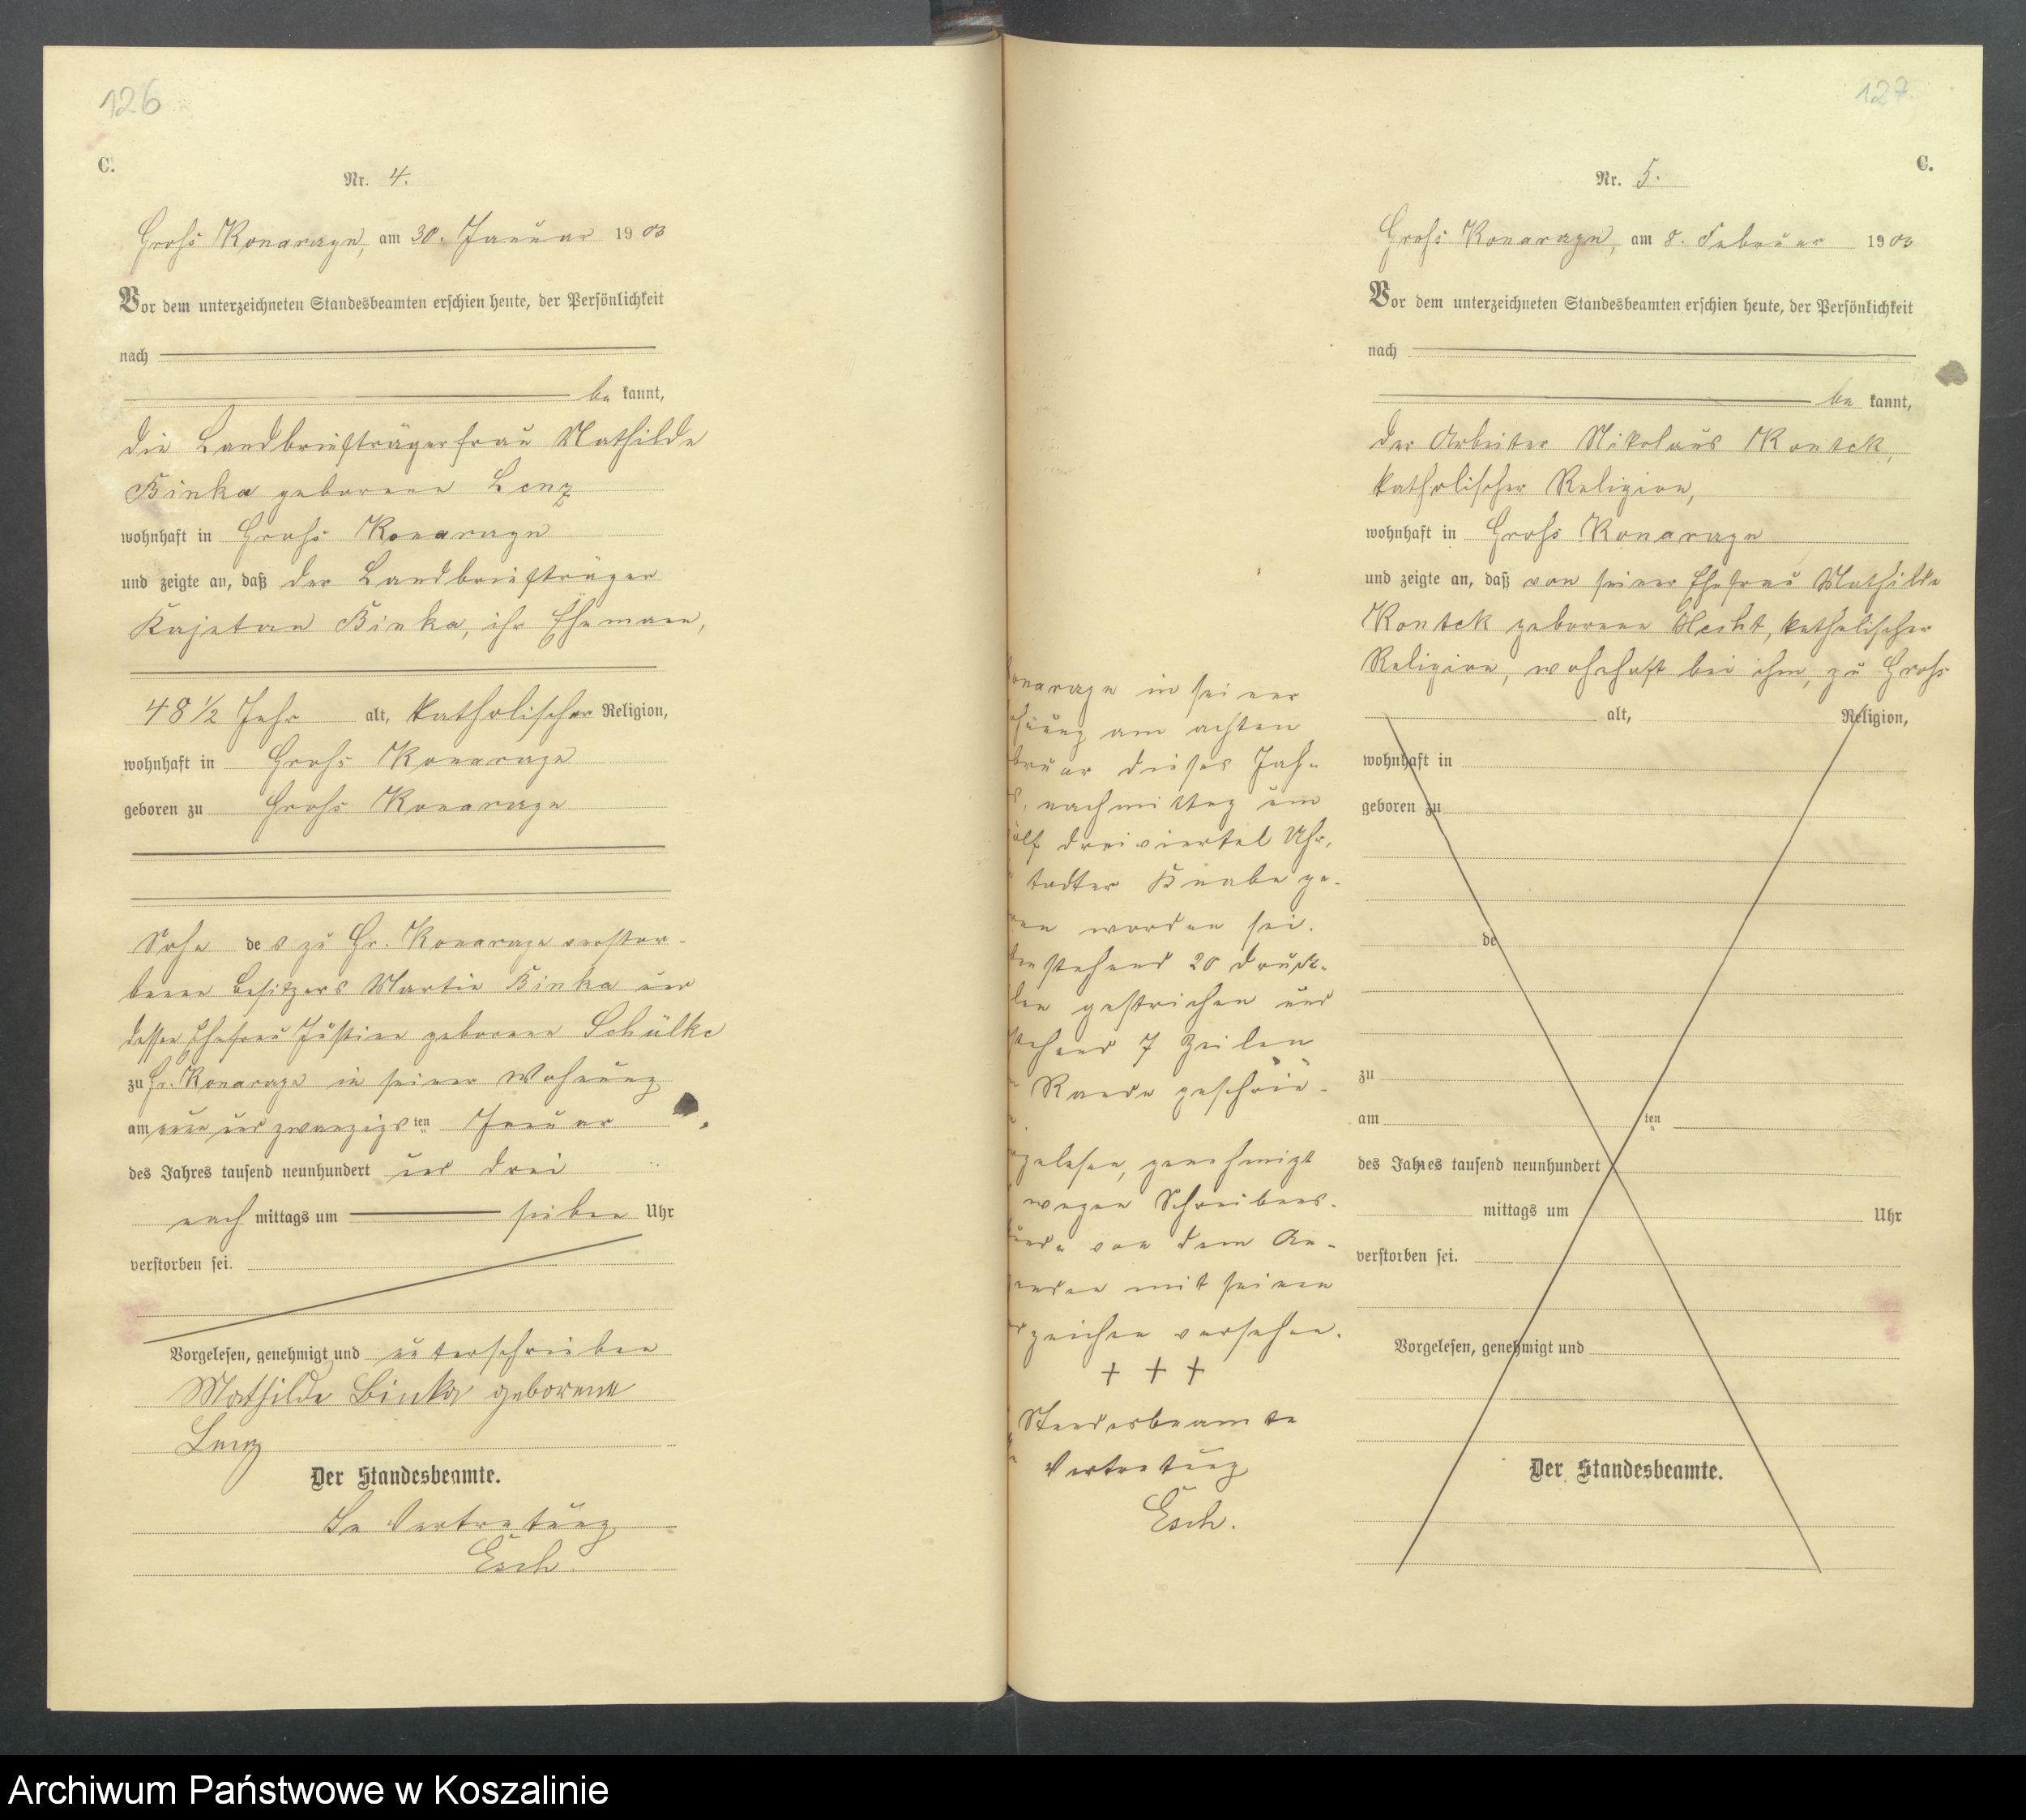 126
C.
Nr. 4.
Groß Konarzyn, am 30. Januar 1903
Vor dem unterzeichneten Standesbeamten erschien heute, der Persönlichkeit
nach
be kannt,
die Landbriefträgerfrau Mathilde
Binka geborene Lenz
wohnhaft in Groß Konarzyn
und zeigte an, daß der Landbriefträger
Kajetan Binka, ihr Ehemann,
48 1/2 Jahr alt, katholischer Religion,
wohnhaft in Groß Konarzyn
geboren zu Groß Konarzyn
Sohn des zu Gr. Konarzyn verstor-
benen Besitzers Martin Binka und
dessen Ehefrau Justine geborene Schülke
zu Gr. Konarzyn in seiner Wohnung
am neun und zwanzigsten Januar
des Jahres tausend neunhundert und drei
nach mittags um sieben Uhr
verstorben sei.
Vorgelesen, genehmigt und unterschrieben
Mathilde Binka geborene
Lenz
Der Standesbeamte.
In Vertretung
Esch.
127.
C.
Nr. 5.
Groß Konarzyn, am 8. Februar 1903
Vor dem unterzeichneten Standesbeamten erschien heute, der Persönlichkeit
nach
be kannt,
der Arbeiter Nikolaus Kontek,
katholischer Religion,
wohnhaft in Groß Konarzyn
und zeigte an, daß von seiner Ehefrau Mathilde
Kontek geborene Hecht, katholischer
Religion, wohnhaft bei ihm, zu Groß
alt, Religion,
wohnhaft in
geboren zu
de
zu
am ten
des Jahres tausend neunhundert
mittags um Uhr
verstorben sei.
Vorgelesen, genehmigt und
Der Standesbeamte.
onarzyn in seiner
hnung am achten
bruar dieses Jah-
s, nachmittag um
ölf dreiviertel Uhr,
todter Knabe ge-
ren worden sei.
benstehend 20 Druck-
len gestrichen und
stehend 7 Zeilen
Rande geschrie-
rgelesen, genehmigt
wegen Schreibens-
unde von dem An-
genden mit seinen
zeichen versehen.
+ + +
Standesbeamte
Vertretung
Esch.
Archiwum Państwowe w Koszalinie